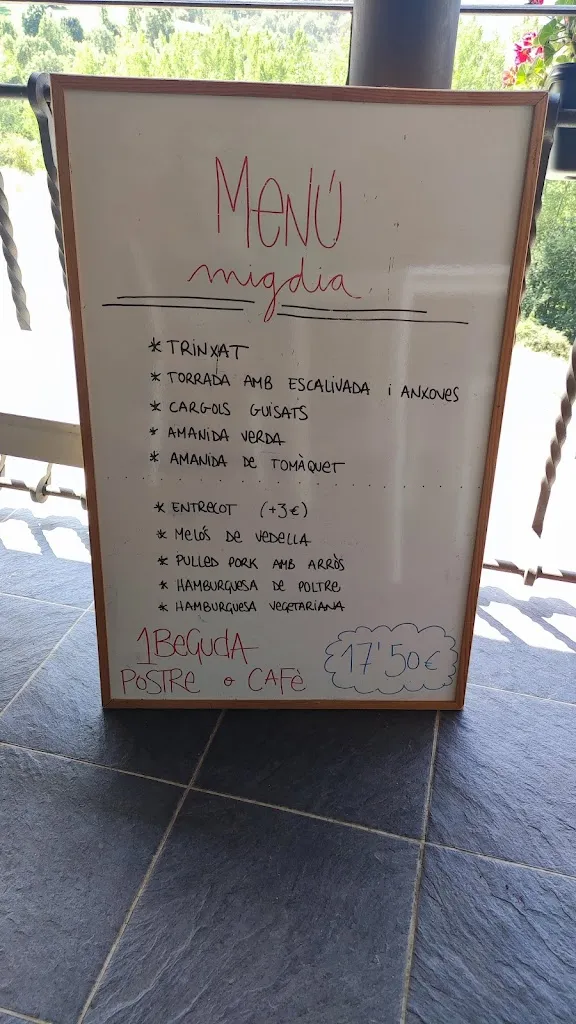 MENÚ
migdia
* TRINXAT
* TORRADA AMB ESCALIVADA i ANXOVES
* CARGOLS GUISATS
* AMANIDA VERDA
* AMANIDA DE TOMÀQUET
* ENTRECOT (+3€)
* MELÓS DE VEDELLA
* PULLED PORK AMB ARRÒS
* HAMBURGUESA DE POLTRE
* HAMBURGUESA VEGETARIANA
1 BEGUDA
POSTRE o CAFÈ
17'50€